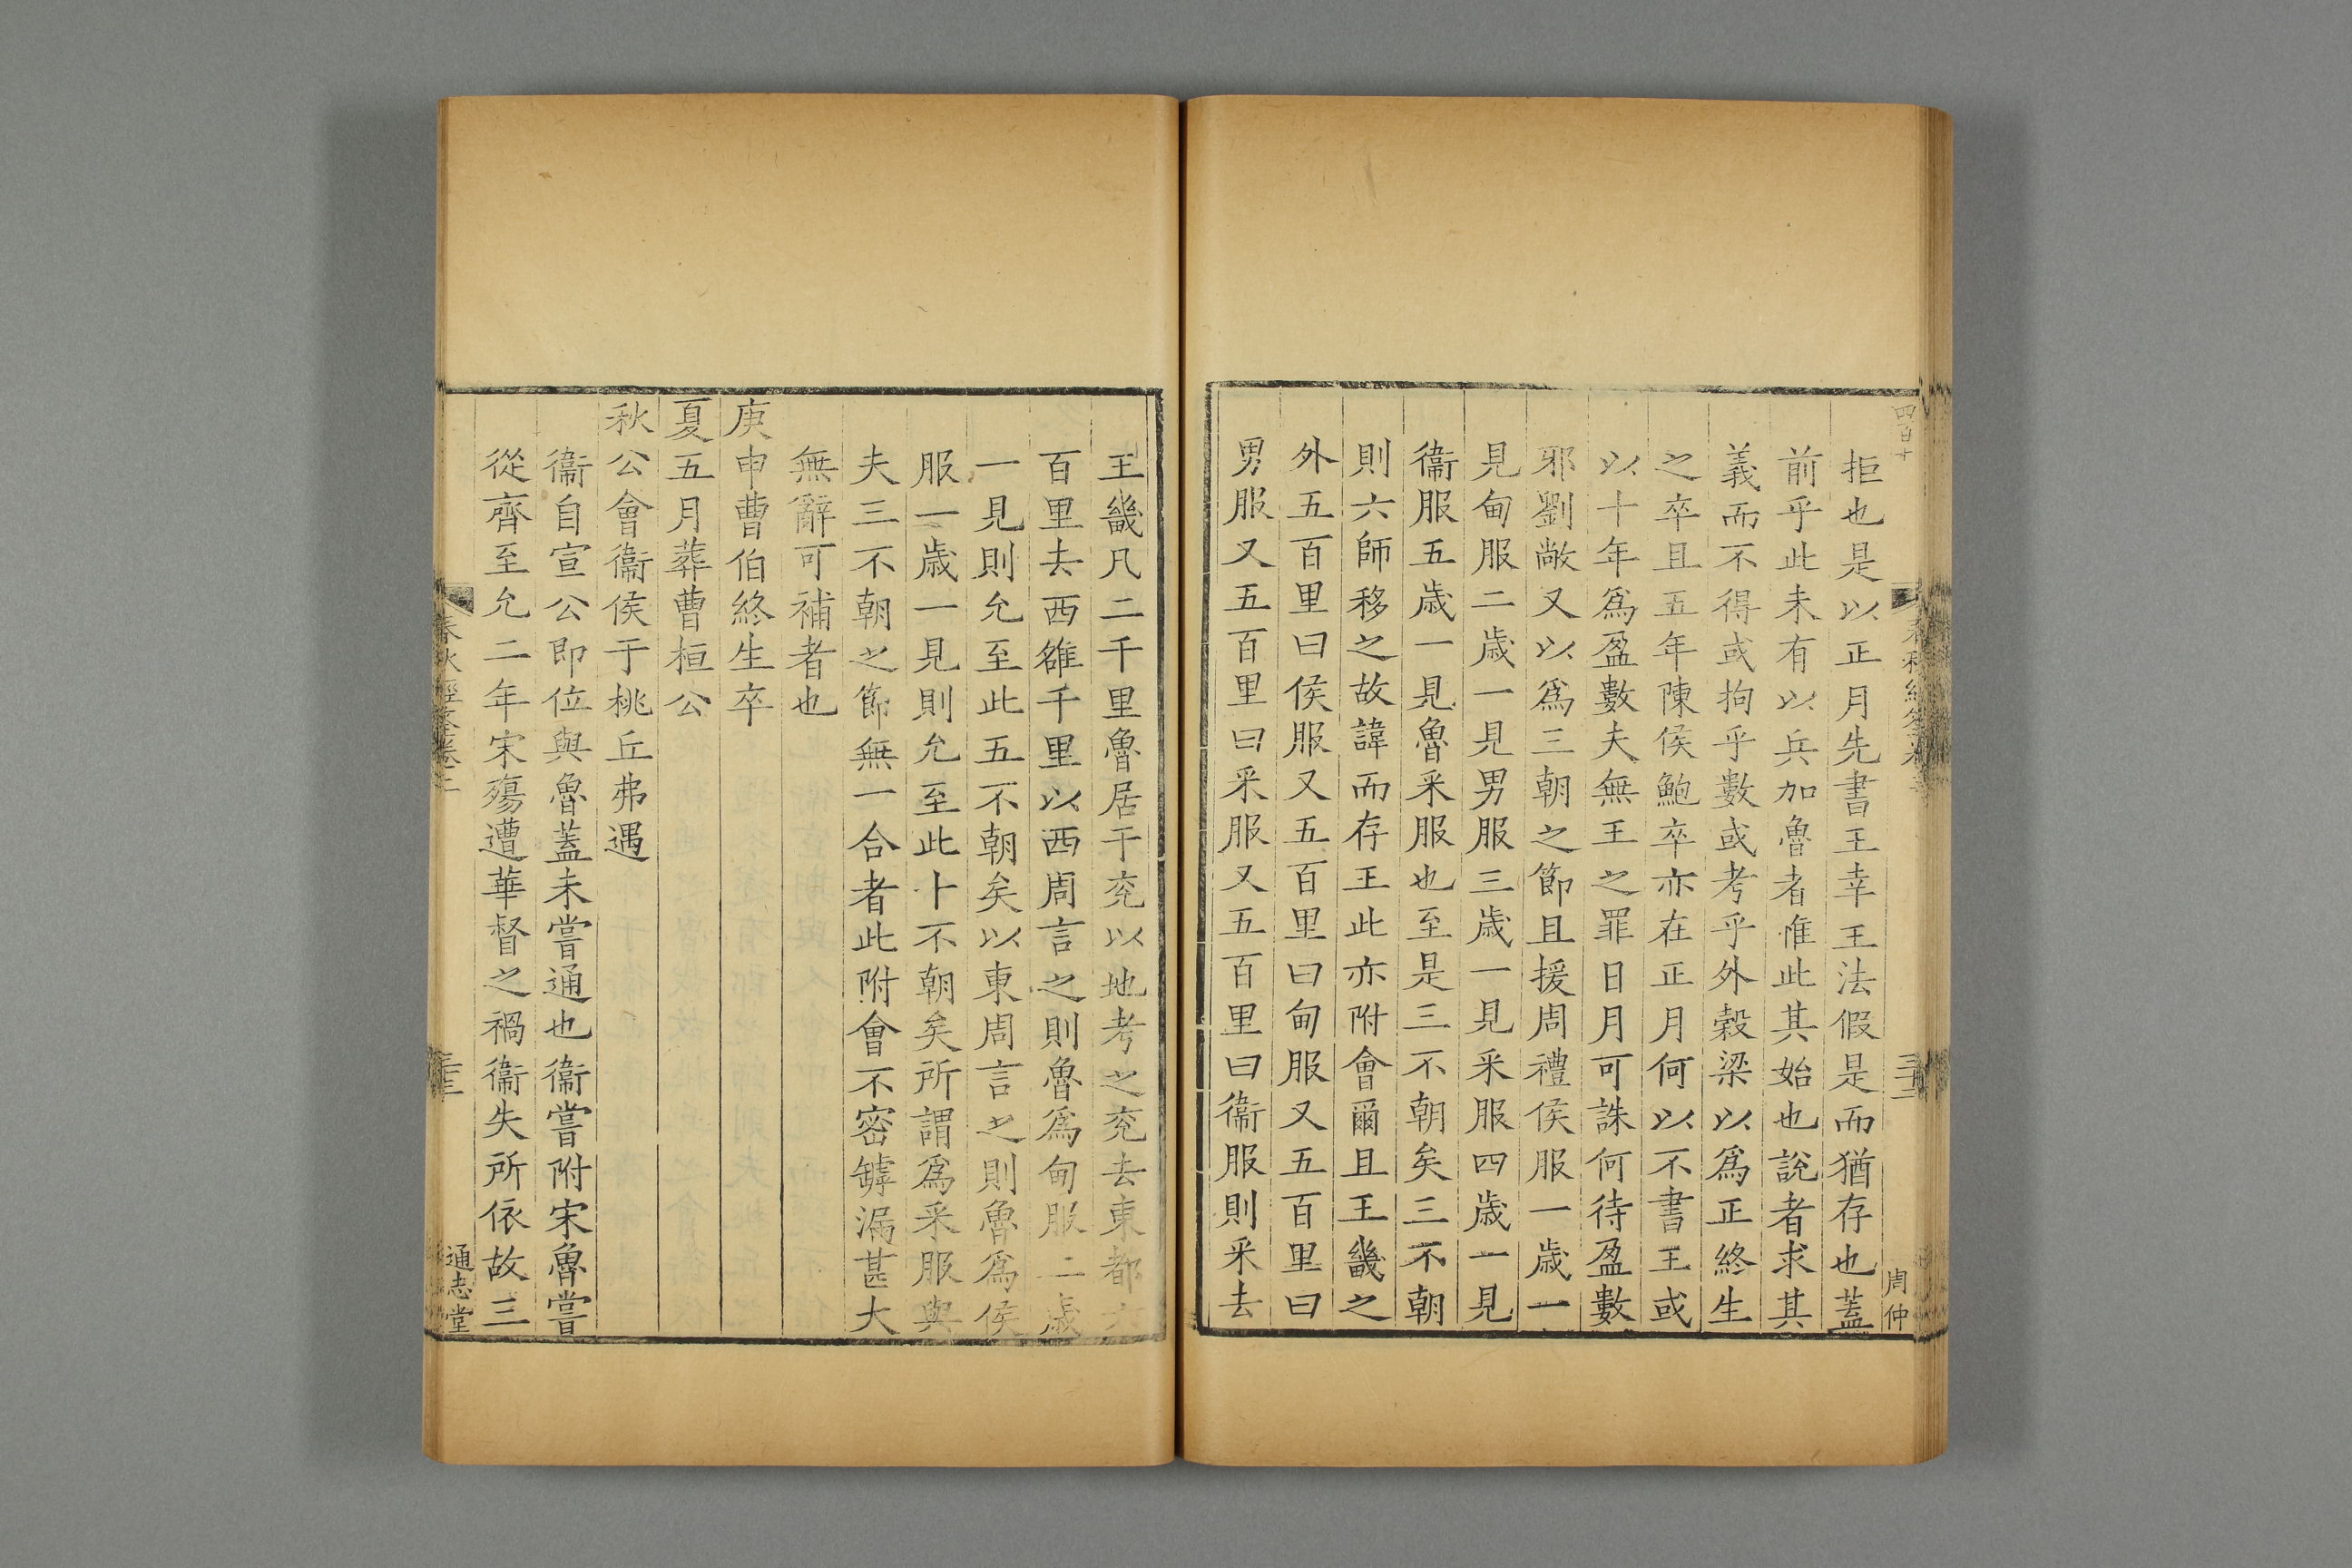 拒也是以正月先書王幸王法假是而猶存也蓋
前乎此未有以兵加魯者惟此其始也說者求其
義而不得或拘乎數或考乎外穀梁以爲正終生
之卒且五年陳侯鮑卒亦在正月何以不書王或
以十年爲盈數夫無王之罪日月可誅何待盈數
邪劉敞又以爲三朝之節且援周禮侯服一歲一
見甸服二歲一見男服三歲一見采服四歲一見
衞服五歲一見魯采服也至是三不朝矣三不朝
則六師移之故諱而存王此亦附會爾且王畿之
外五百里曰侯服又五百里曰甸服又五百里曰
男服又五百里曰采服又五百里曰衞服則采去
周仲
王畿凡二千里魯居于兖以地考之兖去東都六
百里去西雒千里以西周言之則魯爲甸服二歲
一見則允至此五不朝矣以東周言之則魯爲侯
服一歲一見則允至此十不朝矣所謂爲采服與
夫三不朝之節無一合者此附會不密罅漏甚大
無辭可補者也
庚申曹伯終生卒
夏五月葬曹桓公
秋公會衞侯于桃丘弗遇
衞自宣公即位與魯蓋未嘗通也衞嘗附宋魯嘗
從齊至允二年宋殤遭華督之禍衞失所依故三
通志堂